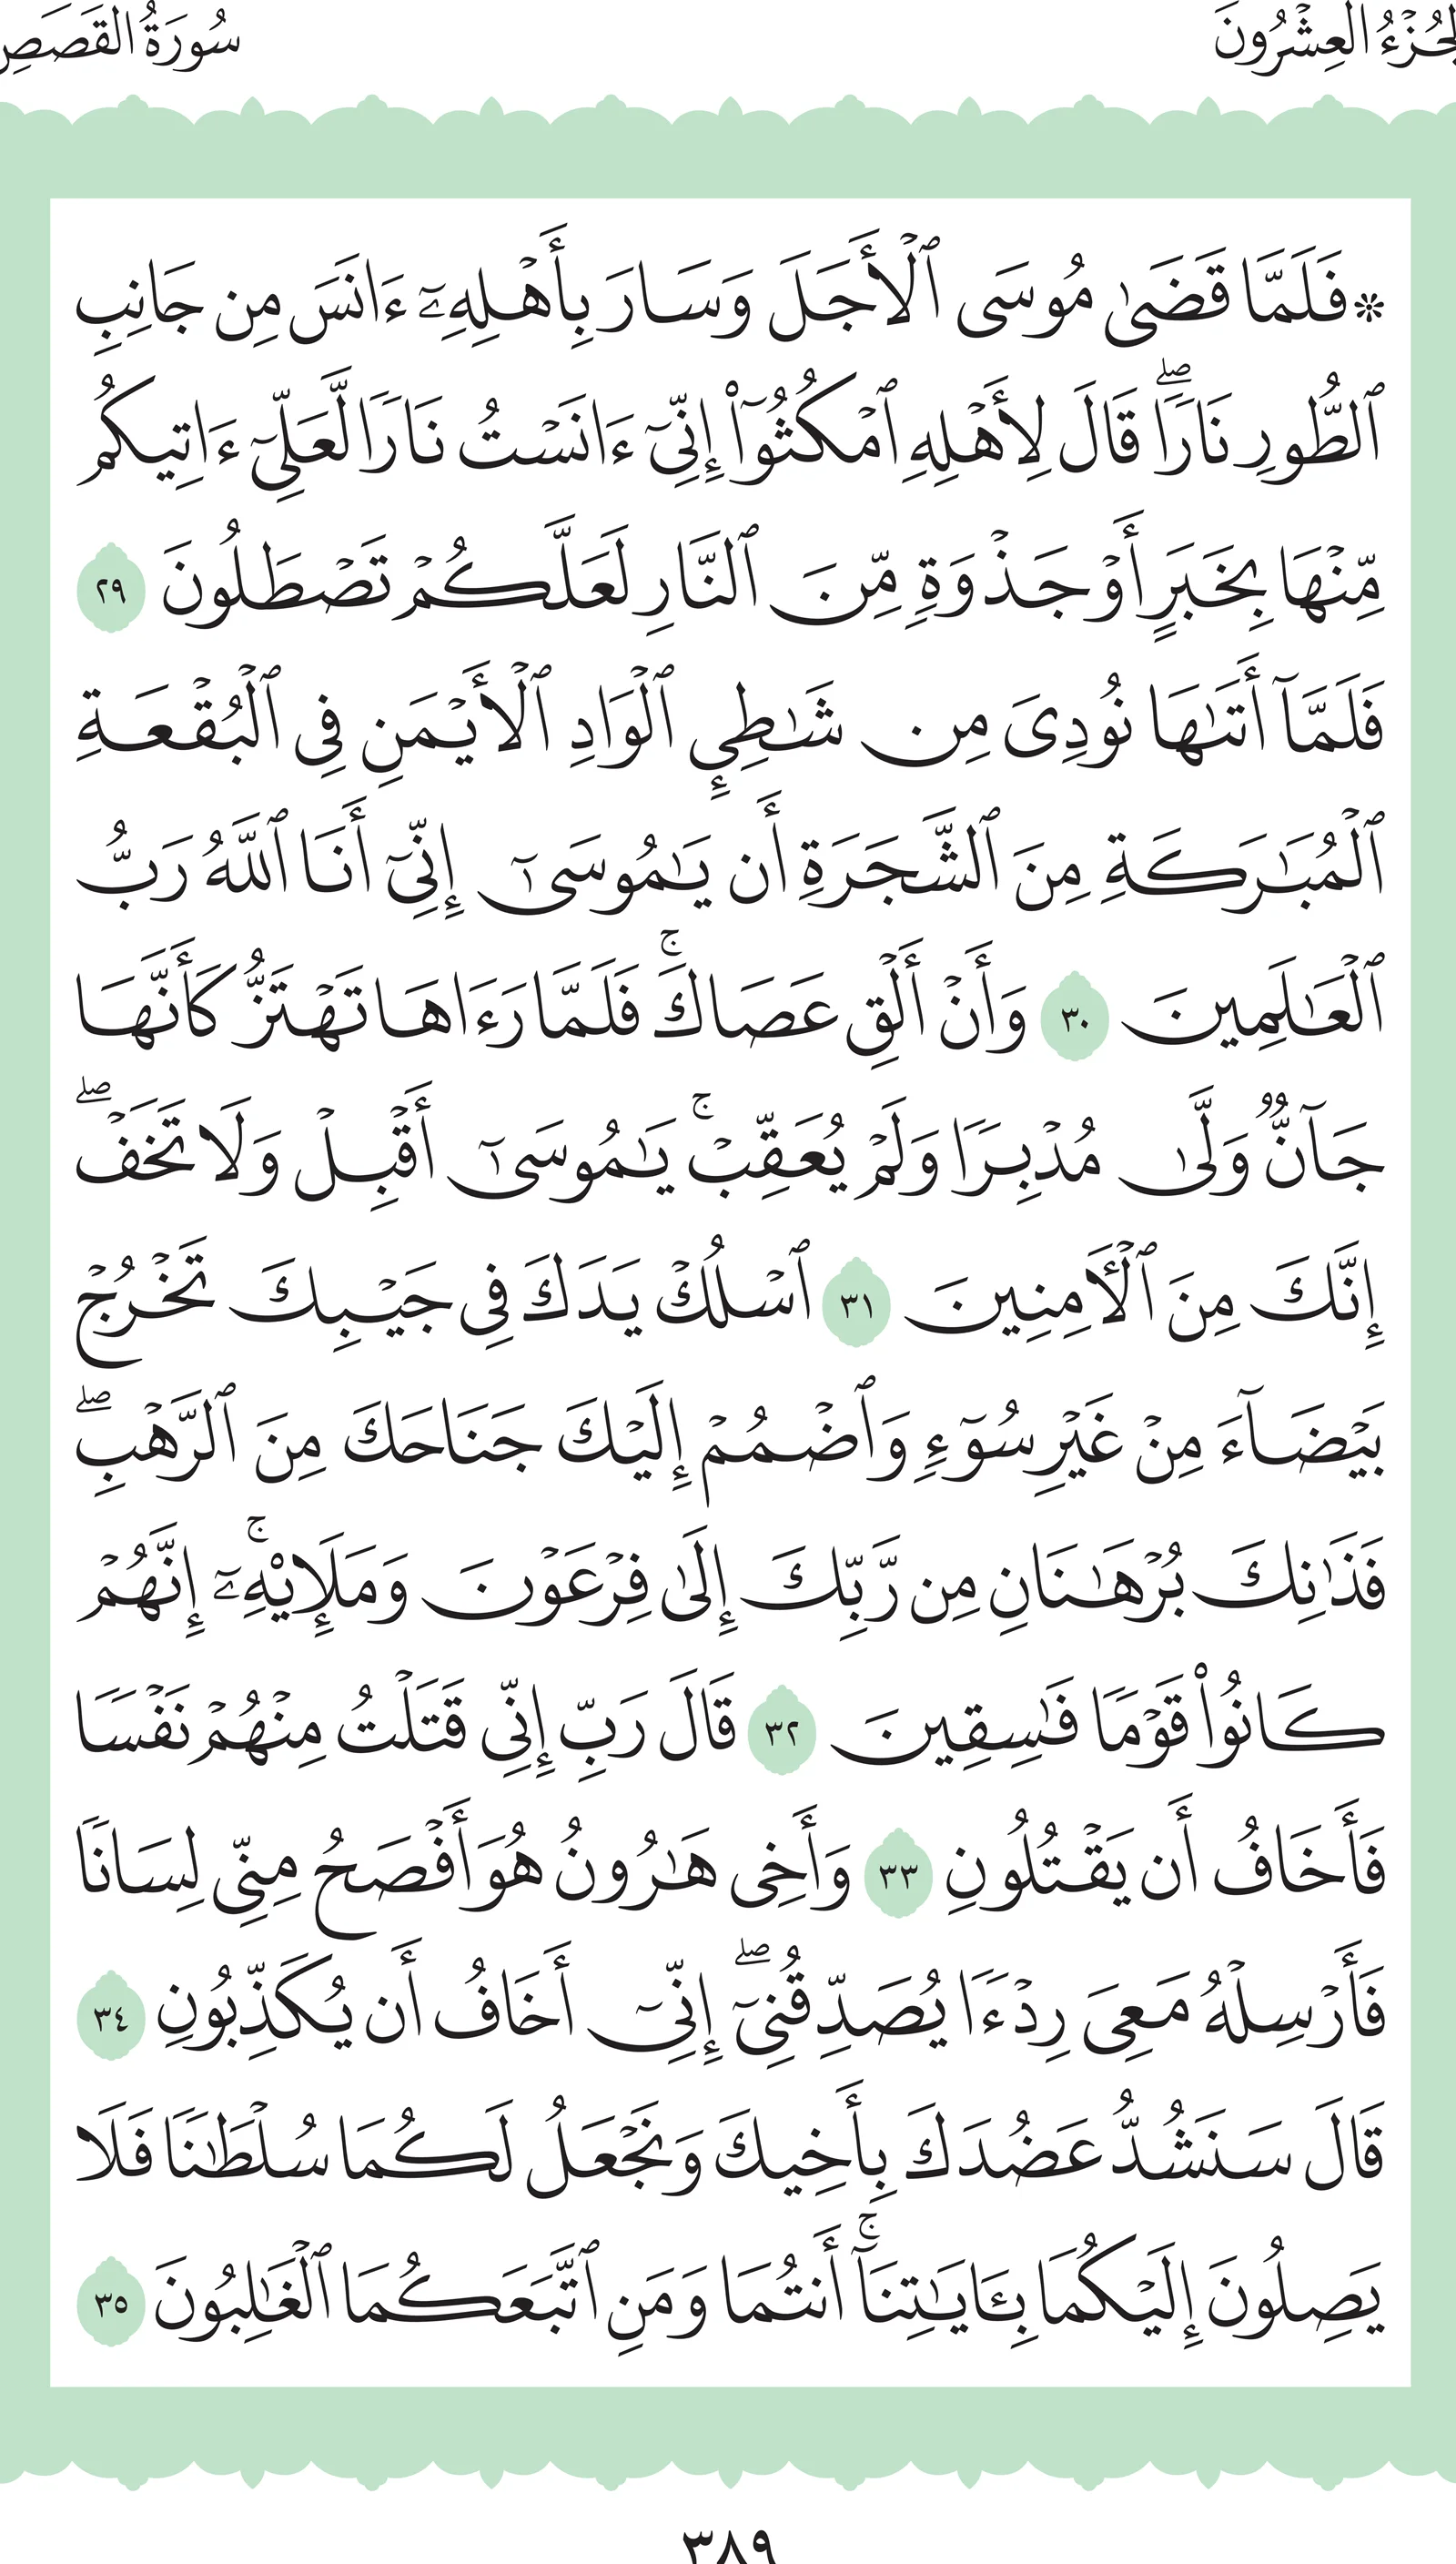 الجُزْءُ العِشْرُونَ
سُورَةُ القَصَصِ
۞ فَلَمَّا قَضَىٰ مُوسَى ٱلۡأَجَلَ وَسَارَ بِأَهۡلِهِۦٓ ءَانَسَ مِن جَانِبِ
ٱلطُّورِ نَارٗاۖ قَالَ لِأَهۡلِهِ ٱمۡكُثُوٓاْ إِنِّيٓ ءَانَسۡتُ نَارٗا لَّعَلِّيٓ ءَاتِيكُم
مِّنۡهَا بِخَبَرٍ أَوۡ جَذۡوَةٖ مِّنَ ٱلنَّارِ لَعَلَّكُمۡ تَصۡطَلُونَ ٢٩
فَلَمَّآ أَتَىٰهَا نُودِيَ مِن شَٰطِيِٕ ٱلۡوَادِ ٱلۡأَيۡمَنِ فِي ٱلۡبُقۡعَةِ
ٱلۡمُبَٰرَكَةِ مِنَ ٱلشَّجَرَةِ أَن يَٰمُوسَىٰٓ إِنِّيٓ أَنَا ٱللَّهُ رَبُّ
ٱلۡعَٰلَمِينَ ٣٠ وَأَنۡ أَلۡقِ عَصَاكَۚ فَلَمَّا رَءَاهَا تَهۡتَزُّ كَأَنَّهَا
جَآنّٞ وَلَّىٰ مُدۡبِرٗا وَلَمۡ يُعَقِّبۡۚ يَٰمُوسَىٰٓ أَقۡبِلۡ وَلَا تَخَفۡۖ
إِنَّكَ مِنَ ٱلۡأٓمِنِينَ ٣١ ٱسۡلُكۡ يَدَكَ فِي جَيۡبِكَ تَخۡرُجۡ
بَيۡضَآءَ مِنۡ غَيۡرِ سُوٓءٖ وَٱضۡمُمۡ إِلَيۡكَ جَنَاحَكَ مِنَ ٱلرَّهۡبِۖ
فَذَٰنِكَ بُرۡهَٰنَانِ مِن رَّبِّكَ إِلَىٰ فِرۡعَوۡنَ وَمَلَإِيْهِۦٓۚ إِنَّهُمۡ
كَانُواْ قَوۡمٗا فَٰسِقِينَ ٣٢ قَالَ رَبِّ إِنِّي قَتَلۡتُ مِنۡهُمۡ نَفۡسٗا
فَأَخَافُ أَن يَقۡتُلُونِ ٣٣ وَأَخِي هَٰرُونُ هُوَ أَفۡصَحُ مِنِّي لِسَانٗا
فَأَرۡسِلۡهُ مَعِيَ رِدۡءٗا يُصَدِّقُنِيٓۖ إِنِّيٓ أَخَافُ أَن يُكَذِّبُونِ ٣٤
قَالَ سَنَشُدُّ عَضُدَكَ بِأَخِيكَ وَنَجۡعَلُ لَكُمَا سُلۡطَٰنٗا فَلَا
يَصِلُونَ إِلَيۡكُمَا بِـَٔايَٰتِنَآۚ أَنتُمَا وَمَنِ ٱتَّبَعَكُمَا ٱلۡغَٰلِبُونَ ٣٥
٣٨٩